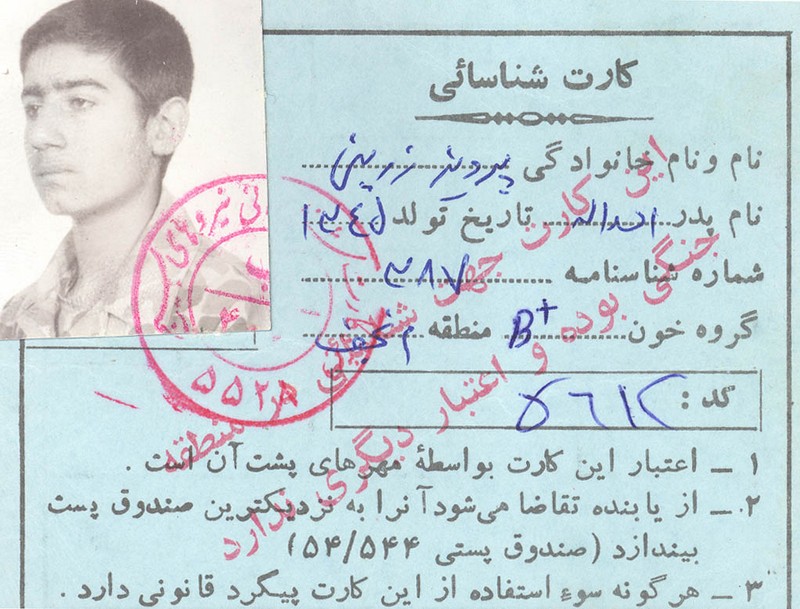 کارت شناسائی
نام و نام خانوادگی پرویز زرینی
نام پدر اسداله تاریخ تولد ۱۳۴۵
شماره شناسنامه ۳۸۷
گروه خون B+ منطقه
کد :
۱ – اعتبار این کارت بواسطهٔ مهرهای پشت آن است .
۲ – از یابنده تقاضا می‌شود آنرا به نزدیکترین صندوق پست
بیندازد (صندوق پستی ۵۴/۵۴۴)
۳ – هر گونه سوء استفاده از این کارت پیگرد قانونی دارد .
این کارت جهت شناسائی در منطقه
جنگی بوده و اعتبار دیگری ندارد
نیروهای
۵۵۲۸